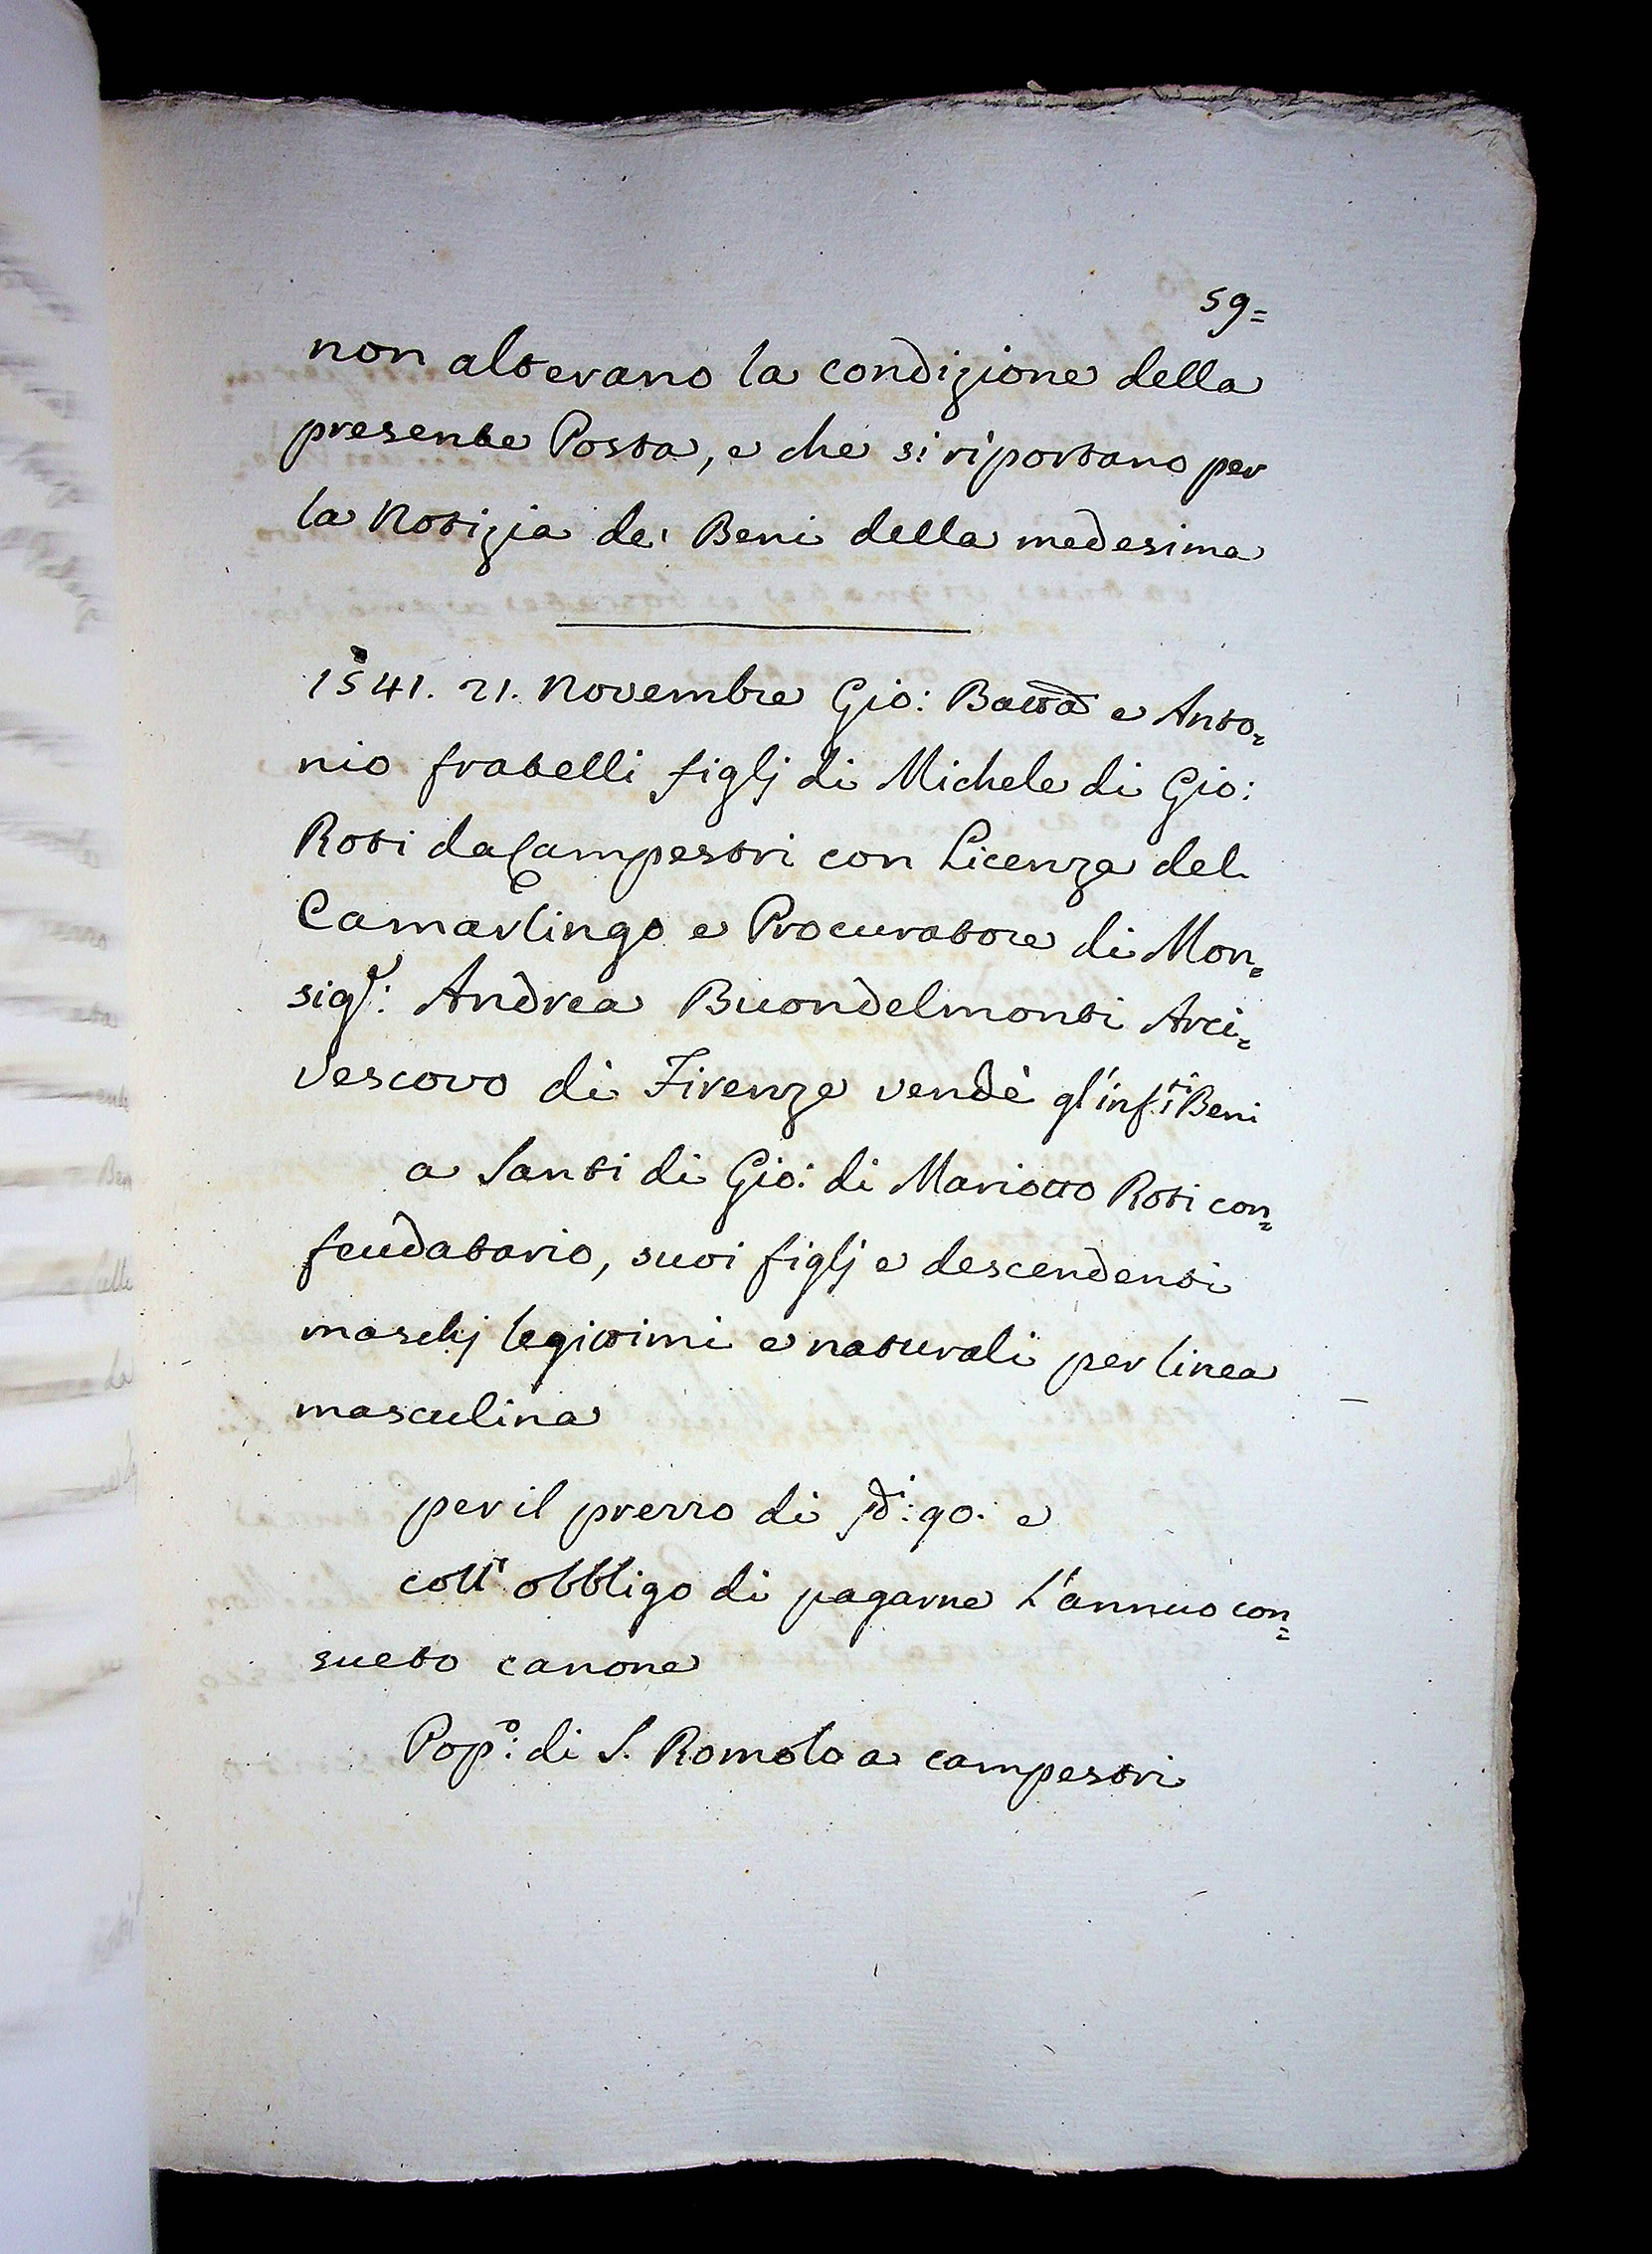 59=
non alterano la condizione della
presente Posta, e che si riportano per
la Notizia de' Beni della medesima
1541. 21. Novembre Gio: Batta e Anto=
nio fratelli figlj di Michele di Gio:
Roti da Campestri con Licenza del
Camarlingo e Procuratore di Mon=
sigr: Andrea Buondelmonti Arci=
vescovo di Firenze vendè gl'infti Beni
a Santi di Gio: di Mariotto Roti con=
feudatario, suoi figlj e descendenti
maschj legittimi e naturali per linea
masculina
per il prezzo di di: 90. e
coll'obbligo di pagarne L'annuo con=
sueto canone
Popo: di S. Romolo a campestri